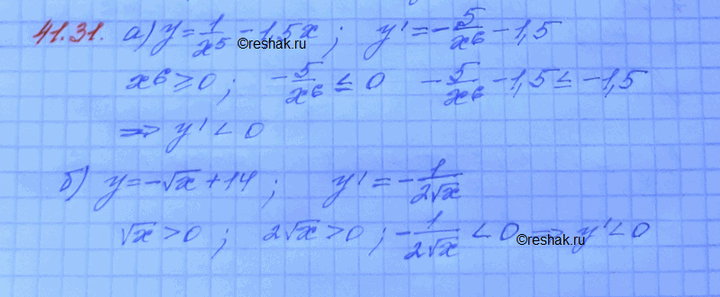 41.31. а) y = 1/x⁵ - 1,5x ; y' = -5/x⁶ - 1,5
©reshak.ru
x⁶ ≥ 0 ; -5/x⁶ ≤ 0 -5/x⁶ - 1,5 ≤ -1,5
⇒ y' < 0
б) y = -√x + 14 ; y' = -1/2√x
√x > 0 ; 2√x > 0 ; -1/2√x < 0 ⇒ y' < 0
©reshak.ru